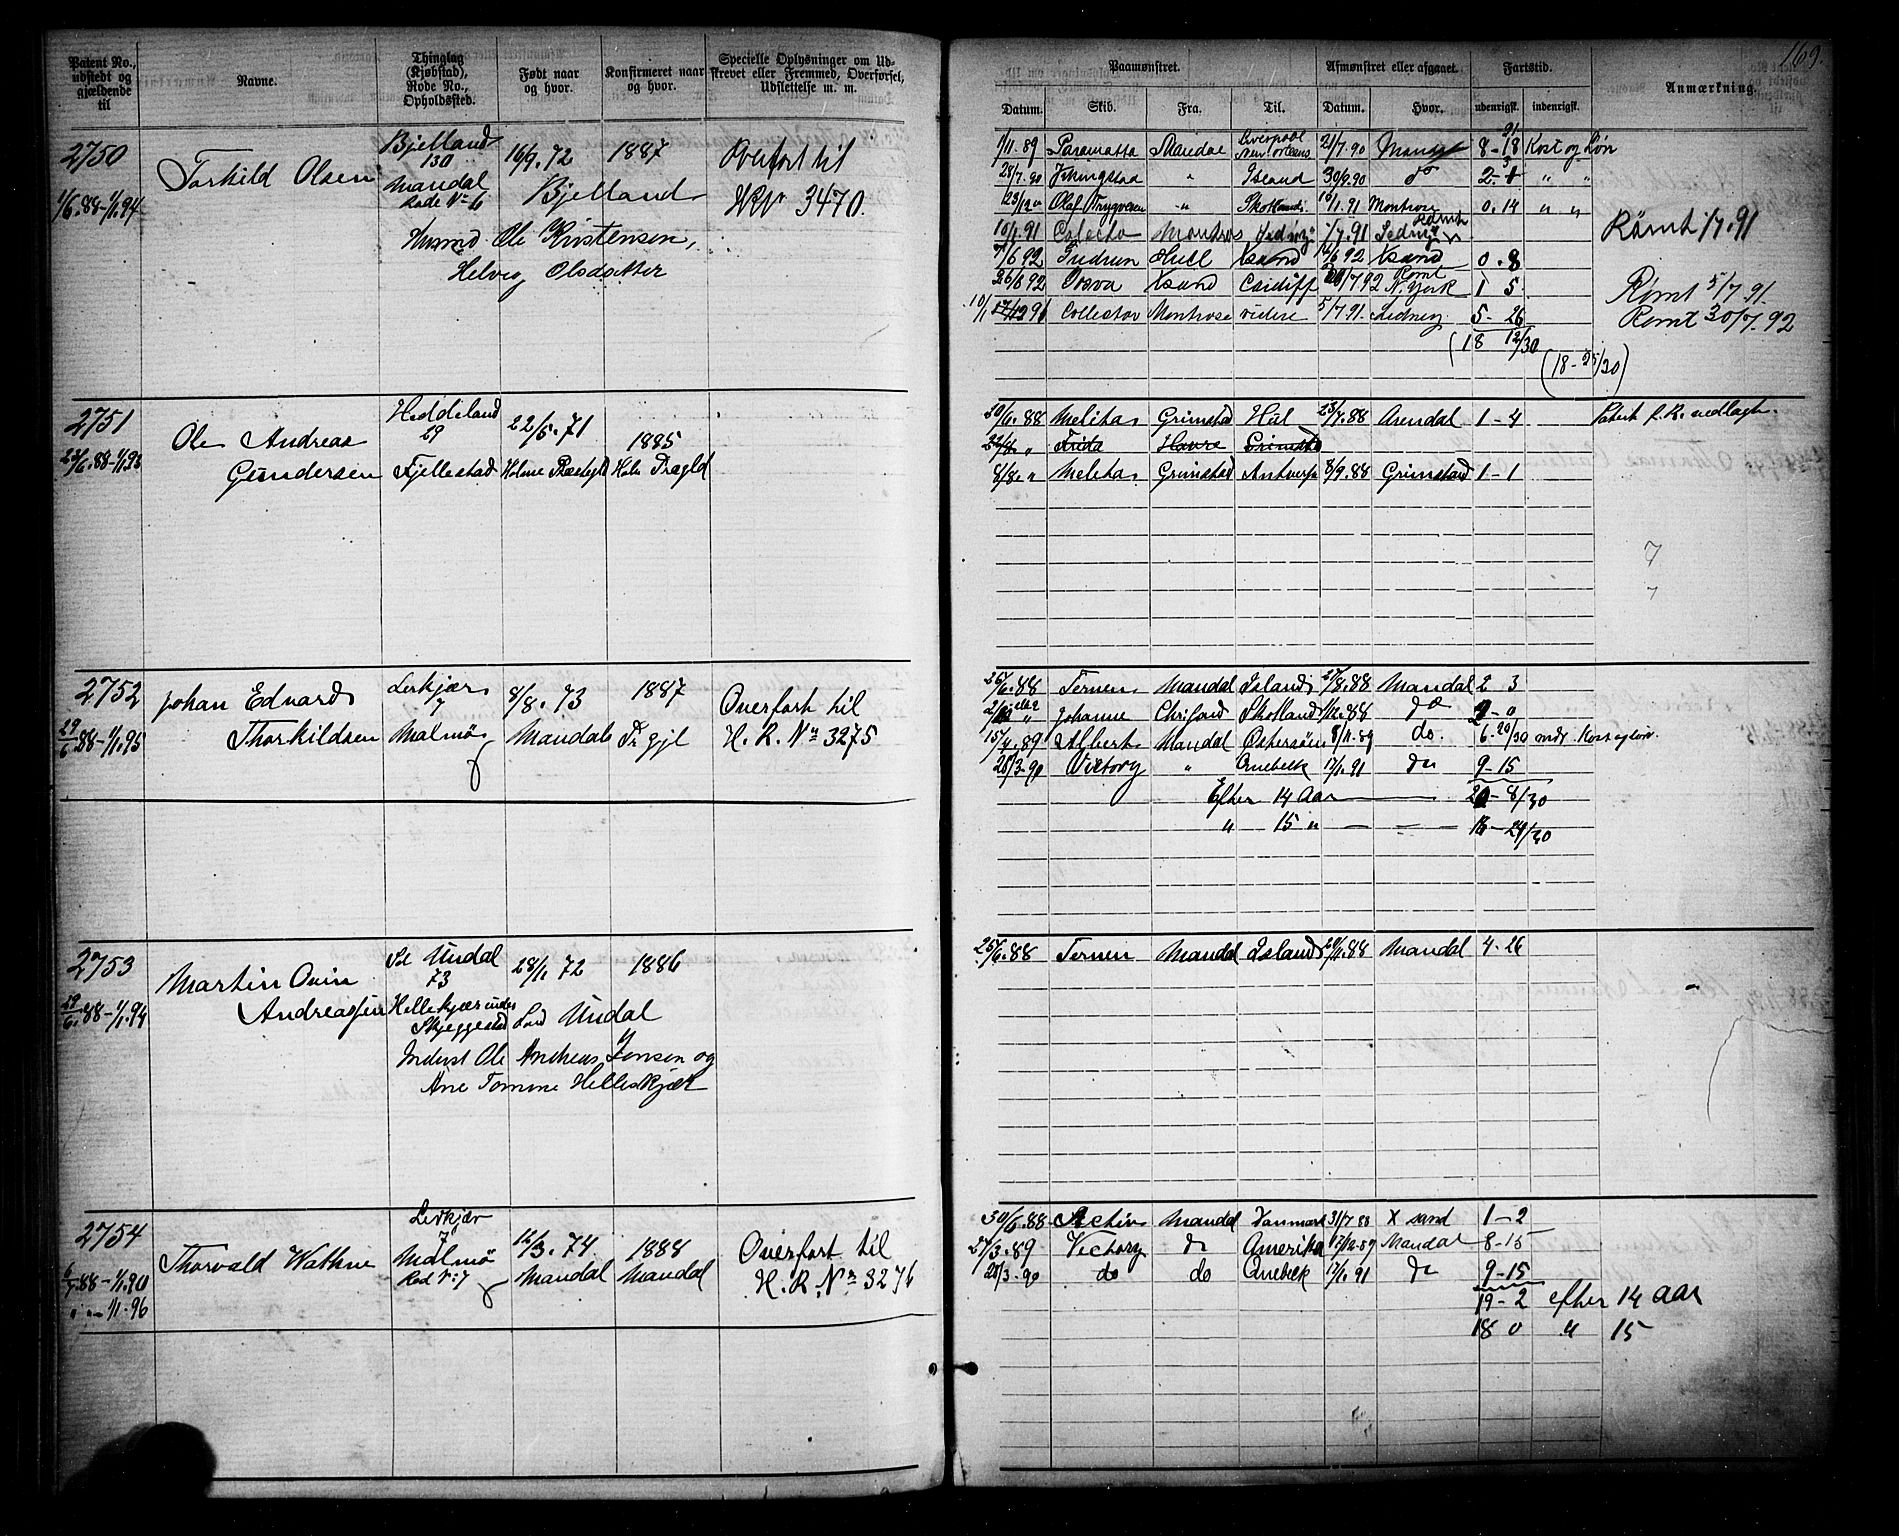 169.
Patent No., udstedt og gjældende til
Navne.
Thinglag (Kjøbstad), Rode No., Opholdssted.
Født naar og hvor.
Konfirmeret naar og hvor.
Specielle Oplysninger om Udskrevet eller Fremmed, Overførsel, Udslettelse m. m.
Paamønstret.
Afmønstret eller afgaaet.
Fartstid.
Anmærkning.
Datum. Skib. Fra. Til. Datum. Hvor. udenrigsk. indenrigsk.
2750
1/6.88-1/1.94
Torkild Olsen
Bjelland
130
Mandal
Rode No 6
16/9.72
Bjelland
1887
Overført til
HRNr 3470.
Husmd Ole Kristensen,
Helvig Olsdatter
1/11.89 Paramatta Mandal Liverpool New Orleans 21/7.90 Mandal 8-18 Kost og Løn
28/7.90 Island 30/9.90 do " "
23/12 " Olaf Trygvesen " Skotland 10/1.91 Montrose 0.14 " "
10/1.91 Montros 1/7.91 Rømt
Rømt 1/7.91
7/6 92 Gudrun Hull Xsand 14/6 92 Xsand 0.8
26/6 92 Xsand Cardiff 20/7 92 Rømt N. York 1 5
Rømt 5/7.91.
10/1 91 Collector Montrose videre 5/7.91. Sidney 5-26
Rømt 30/7.92
(18 12/30
(18-25/30)
2751
Ole Andreas
Gundersen
Heddeland
29
Fjellestad
22/5.71
Holme Præstegld
1885
Holm Præegld
30/6.88 Melita Grimstad Hul 23/7.88 Arendal 1-4
" Frida Havre Grimstd
8/8. " Melita Grimstad Antverp 8/9.88 Grimstad 1-1
7
7
2752
29/6.88-1/1.95
Johan Edvard
Thorkildsen
Lerkjær
7
Malmø
8/8.73
Mandal
1887
Overført til
H. R. No 3275
26/6.88 Ternen Mandal Island 27/8.88 Mandal 2 3
" Johanne Chrisand Skotland 1/12.88 do 2-0
15/4.89 Albert Mandal Østersøen 8/11.89 do. 6.20/30 mdr Kost og løn.
28/3.90 Victory " Quebek 17/1.91 do 9-15
Efter 14 Aar 20-8/30
" 15 "
2753
29/6.88-1/1.94
Martin Ovin
Andreassen
Sd Undal
73
Helleskjær under
Skjeggestad
28/1.72
Sør Undal
1886
Inderst Ole Andreas Jensen og
Ane Tomine Helleskjær
25/6.88 Ternen Mandal Island 20/11.88 Mandal 4-26
2754
6/7.88-1/1.90
" " - 1/1.96
Thorvald Wathne
Lerkjær
7
Malmø
Rod No 7
12/3.74
Mandal
1888
Mandal
Overført til
H. R. No 3276
30/6.88 Activ Mandal Danmark 31/7 88 X sand 1-2
27/3.89 Victory do Amerika 17/12.89 Mandal 8-15
28/3.90 do do Quebek 17/1.91 do 9-15
19-2 efter 14 aar
18 0 " 15